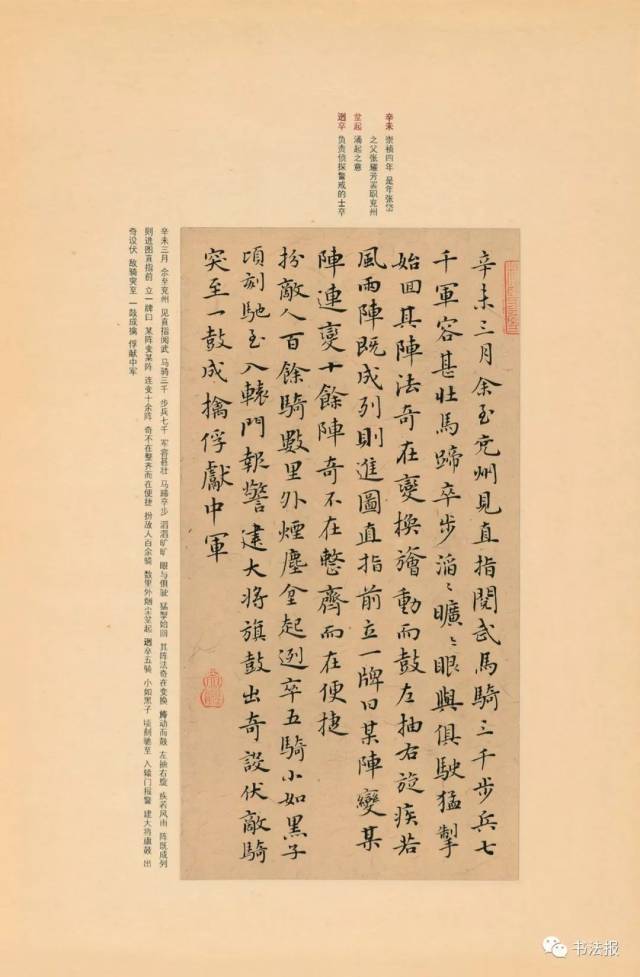 辛未 崇祯四年 是年张岱
之父张耀芳罢职兖州
坌起 涌起之意
迾卒 负责侦探警戒的士卒
辛未三月余至兗州見直指閱武馬騎三千步兵七
千軍容甚壯馬蹄卒步滔〻曠〻眼與俱駛猛掣
始回其陣法奇在變換旝動而鼓左抽右旋疾若
風雨陣既成列則進圖直指前立一牌曰某陣變某
陣連變十餘陣奇不在整齊而在便捷
扮敵人百餘騎數里外煙塵坌起迾卒五騎小如黑子
頃刻馳至入轅門報警建大将旗鼓出奇設伏敵騎
突至一鼓成擒俘獻中軍
辛未三月 余至兖州 见直指阅武 马骑三千 步兵七千 军容甚壮 马蹄卒步 滔滔旷旷 眼与俱驶 猛掣始回 其阵法奇在变换 旝动而鼓 左抽右旋 疾若风雨 阵既成列
则进图直指前 立一牌曰 某阵变某阵 连变十余阵 奇不在整齐而在便捷 扮敌人百余骑 数里外烟尘坌起 迾卒五骑 小如黑子 顷刻驰至 入辕门报警 建大将旗鼓 出
奇设伏 敌骑突至 一鼓成擒 俘献中军
书法报